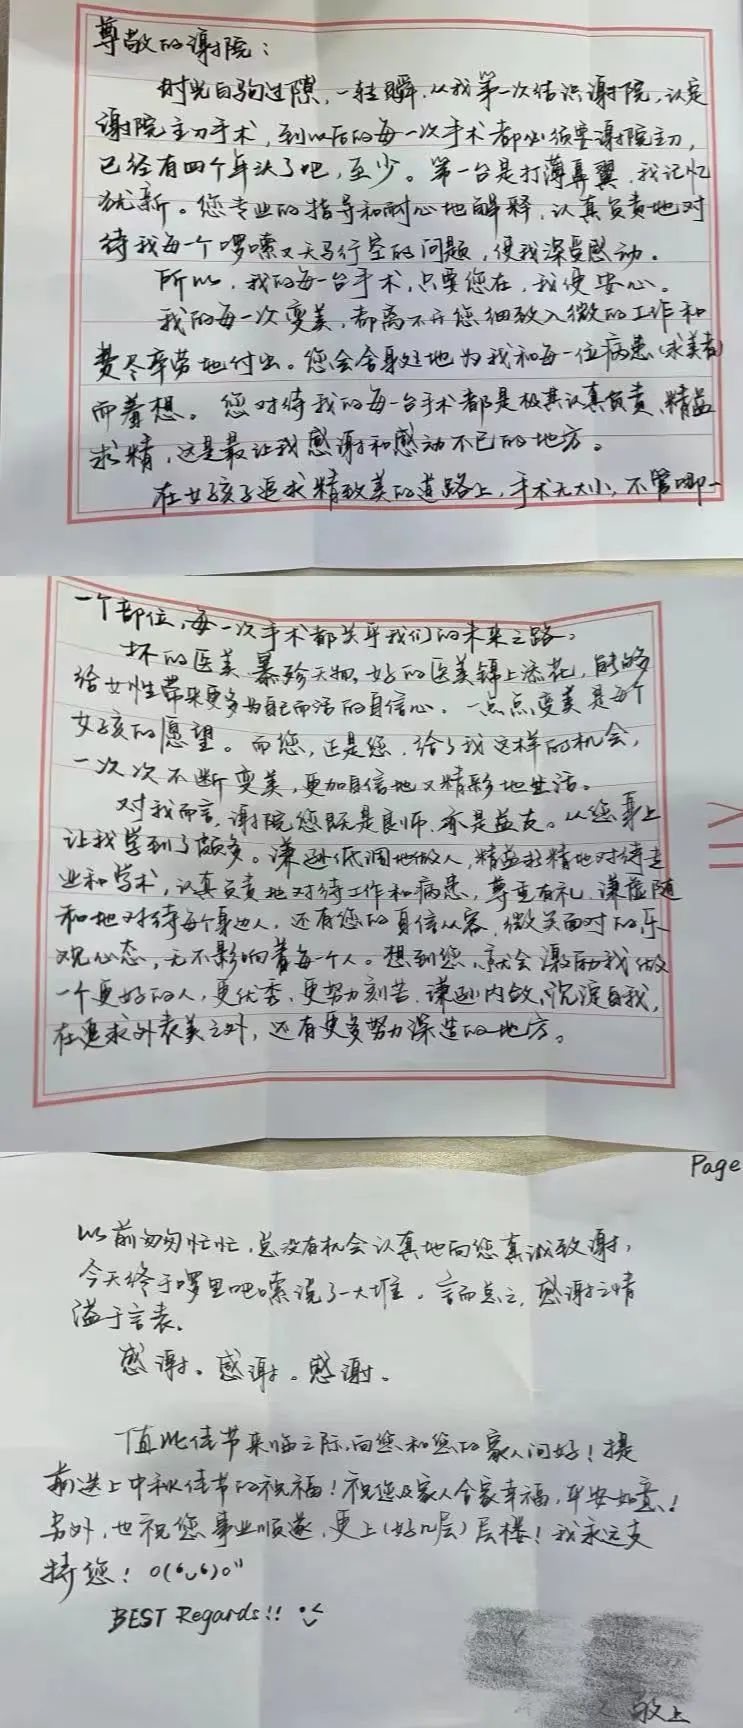 尊敬的谢院：
时光白驹过隙，一转瞬，从我第一次结识谢院，认定
谢院主刀手术，到以后的每一次手术都必须要谢院主刀，
已经有四个年头了吧，至少。第一台是打薄鼻翼，我记忆
犹新。您专业的指导和耐心地解释，认真负责地对
待我每一个啰嗦又天马行空的问题，使我深受感动。
所以，我的每一台手术，只要您在，我便安心。
我的每一次变美，都离不开您细致入微的工作和
费尽辛劳地付出。您会舍身处地为我和每一位病患（求美者）
而着想。您对待我的每一台手术都是极其认真负责、精益
求精，这是最让我感谢和感动不已的地方。
在女孩子追求精致美的道路上，手术无大小，不管哪一
一个部位，每一次手术都关乎我们的未来之路。
坏的医美暴殄天物，好的医美锦上添花，能够
给女性带来更多为自己而活的自信心。一点点变美是每个
女孩的愿望。而您，正是您，给了我这样的机会，
一次次不断变美，更加自信地又精彩地生活。
对我而言，谢院您既是良师，亦是益友。从您身上
让我学到了颇多。谦逊低调地做人，精益求精地对待专
业和学术，认真负责地对待工作和病患，尊重有礼、谦虚随
和地对待每个身边人，还有您的自信从容，微笑面对的乐
观心态，无不影响着每个人。想到您，就会激励我做
一个更好的人，更优秀，更努力刻苦，谦逊内敛，沉淀自我，
在追求外表美之外，还有更多努力深造的地方。
Page
以前匆匆忙忙，总没有机会认真地向您真诚致谢，
今天终于啰里吧嗦说了一大堆。言而总之，感谢之情
溢于言表。
感谢。感谢。感谢。
值此佳节来临之际，向您和您的家人问好！提
前送上中秋佳节的祝福！祝您及家人合家幸福，平安如意！
另外，也祝您事业顺遂，更上（好几层）层楼！我永远支
持您！o(^◡^)o"
BEST Regards!!
敬上